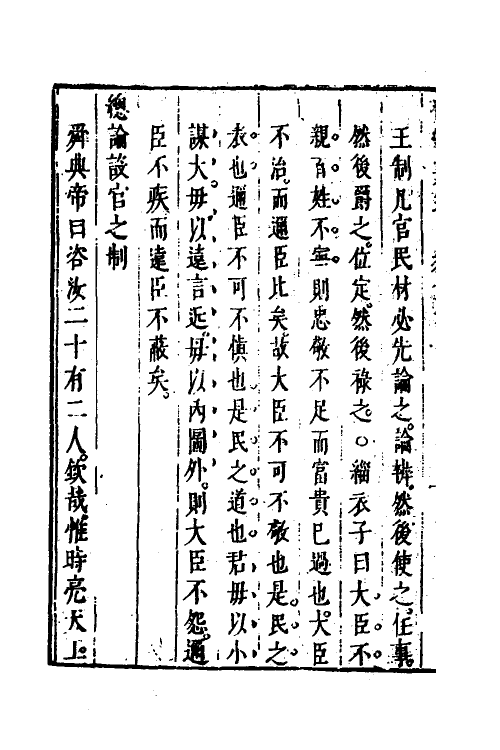 王制凡官民材必先論之論辨然後使之任事
然後爵之位定然後祿之○緇衣子曰大臣不
親百姓不寧則忠敬不足而富貴已過也大臣
不治而邇臣比矣故大臣不可不敬也是民之
表也邇臣不可不慎也是民之道也君毋以小
謀大毋以遠言近毋以內圖外則大臣不怨邇
臣不疾而遠臣不蔽矣
總論設官之制
舜典帝曰咨汝二十有二人欽哉惟時亮天上